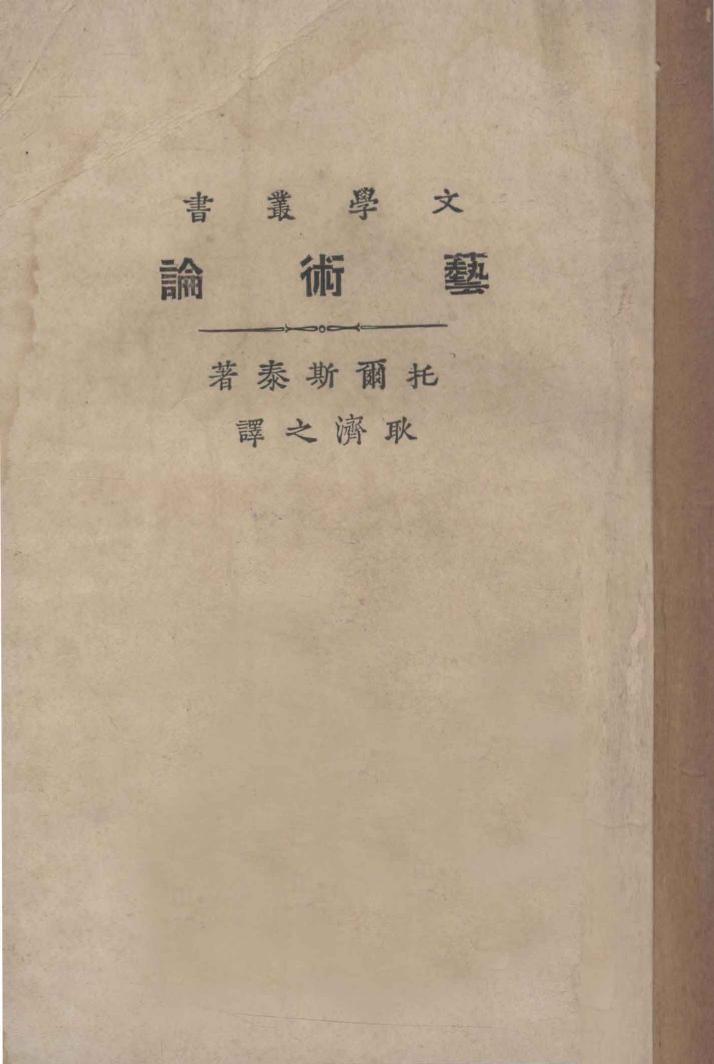 文學叢書
藝術論
托爾斯泰著
耿濟之譯